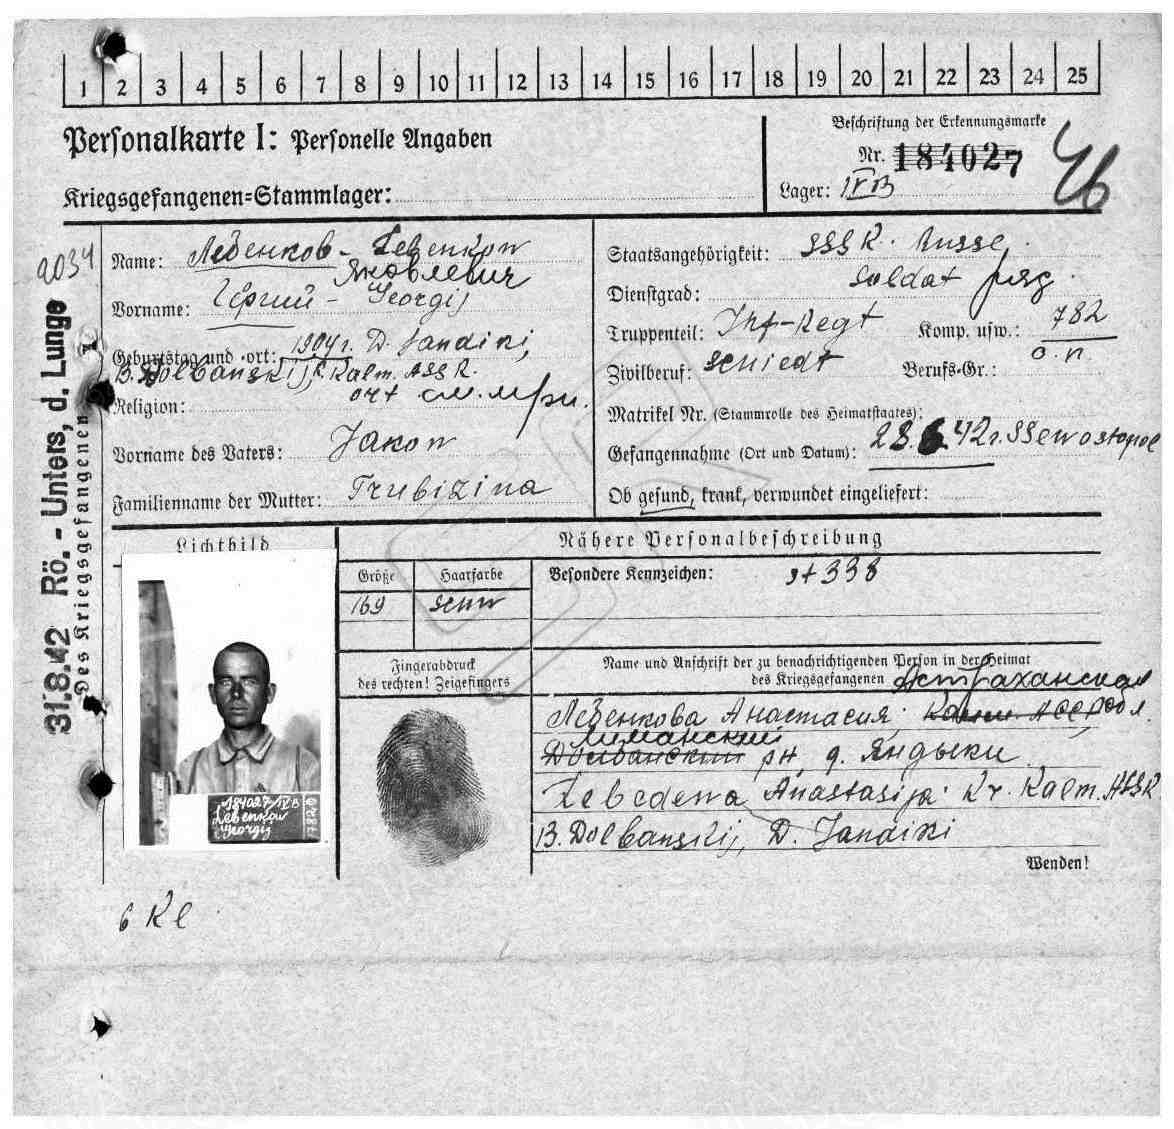 1 2 3 4 5 6 7 8 9 10 11 12 13 14 15 16 17 18 19 20 21 22 23 24 25
Personalkarte I: Personelle Angaben
Kriegsgefangenen=Stammlager:
Beschriftung der Erkennungsmarke
Nr. 184027
Lager: IV B
2034
31.8.42 Rö.-Unters, d. Lunge
Des Kriegsgefangenen
Name: Лебенков - Lebenkow
Яковлевич
Vorname: - Georgij
Geburtstag und -ort: 1904г. D. Jandiki,
B. Dolbanskij, Kr. Kalm. ASSR.
Religion: ort
Vorname des Vaters: Jakow
Familienname der Mutter: Trubizina
Staatsangehörigkeit: SSSR. Russe.
Dienstgrad: Soldat
Truppenteil: Inf-Regt Komp. usw.: 782
Zivilberuf: Schiedt Berufs-Gr.: o.n.
Matrikel Nr. (Stammrolle des Heimatstaates):
Gefangennahme (Ort und Datum): 28.6.42г. SSewostopol
Ob gesund, krank, verwundet eingeliefert:
Lichtbild
184027/IV B
Lebenkow
Georgij
Nähere Personalbeschreibung
Größe Haarfarbe Besondere Kennzeichen:
169 schw
Fingerabdruck
des rechten! Zeigefingers
Name und Anschrift der zu benachrichtigenden Person in der Heimat
des Kriegsgefangenen Астраханская
Лебенкова Анастасия АССР
Лиманский
Долбанский рн, д. Яндыки
Anastasija Kr. Kalm. ASSR
B. Dolbanskij, D. Jandiki
Wenden!
6 Kl